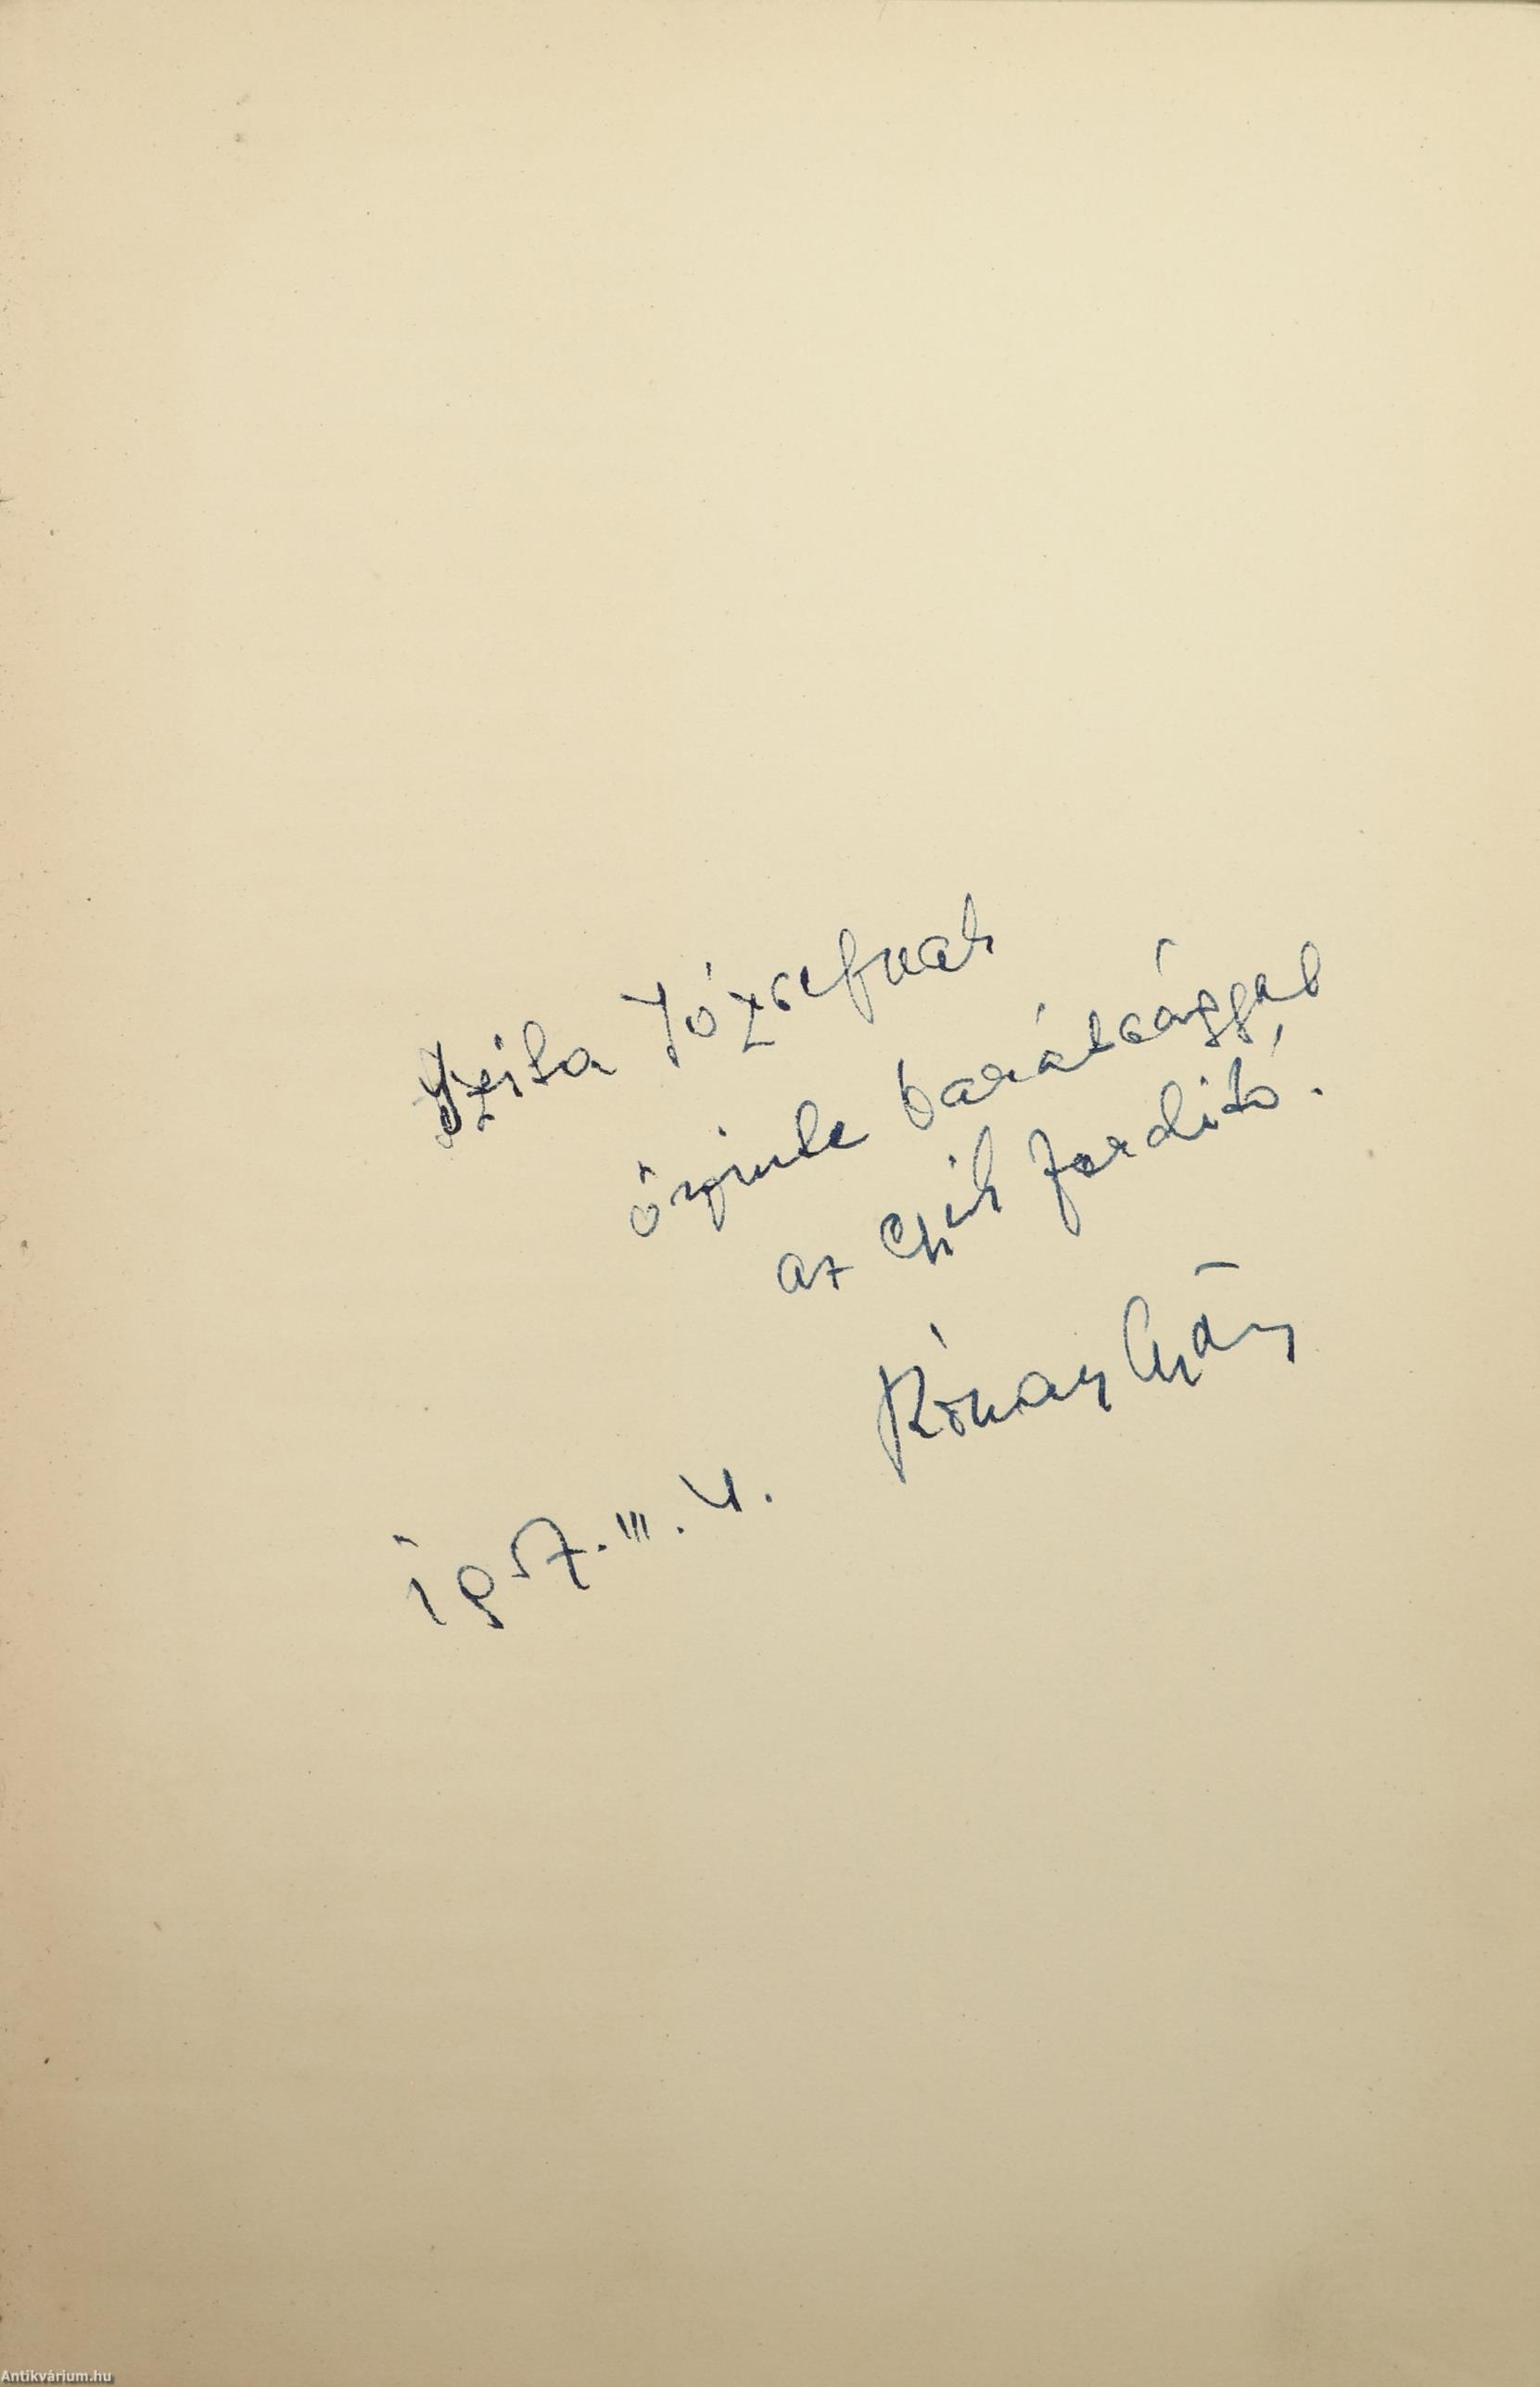 Szita Józsefnek
őszinte barátsággal
az egyik fordító.
Rónay György
1957. III. 4.
Antikvárium.hu